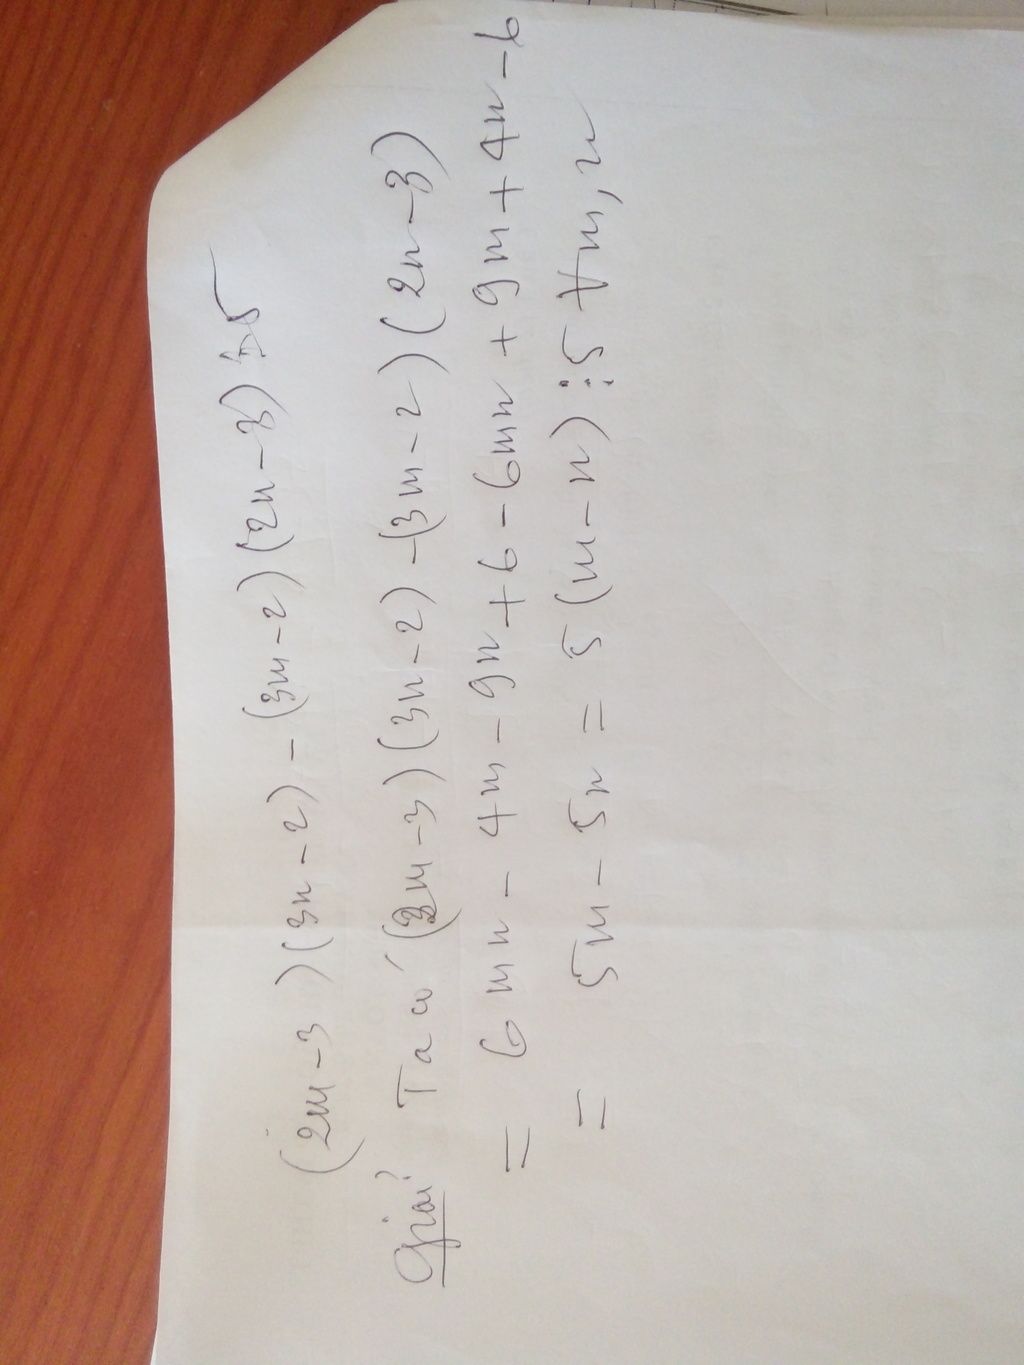 (2m-3)(3n-2)-(3m-2)(2n-3)⋮5
Giải Ta có (2m-3)(3n-2)-(3m-2)(2n-3)
= 6mn - 4m - 9n + 6 - 6mn + 9m + 4n - 6
= 5m - 5n = 5(m-n)⋮5 ∀m,n